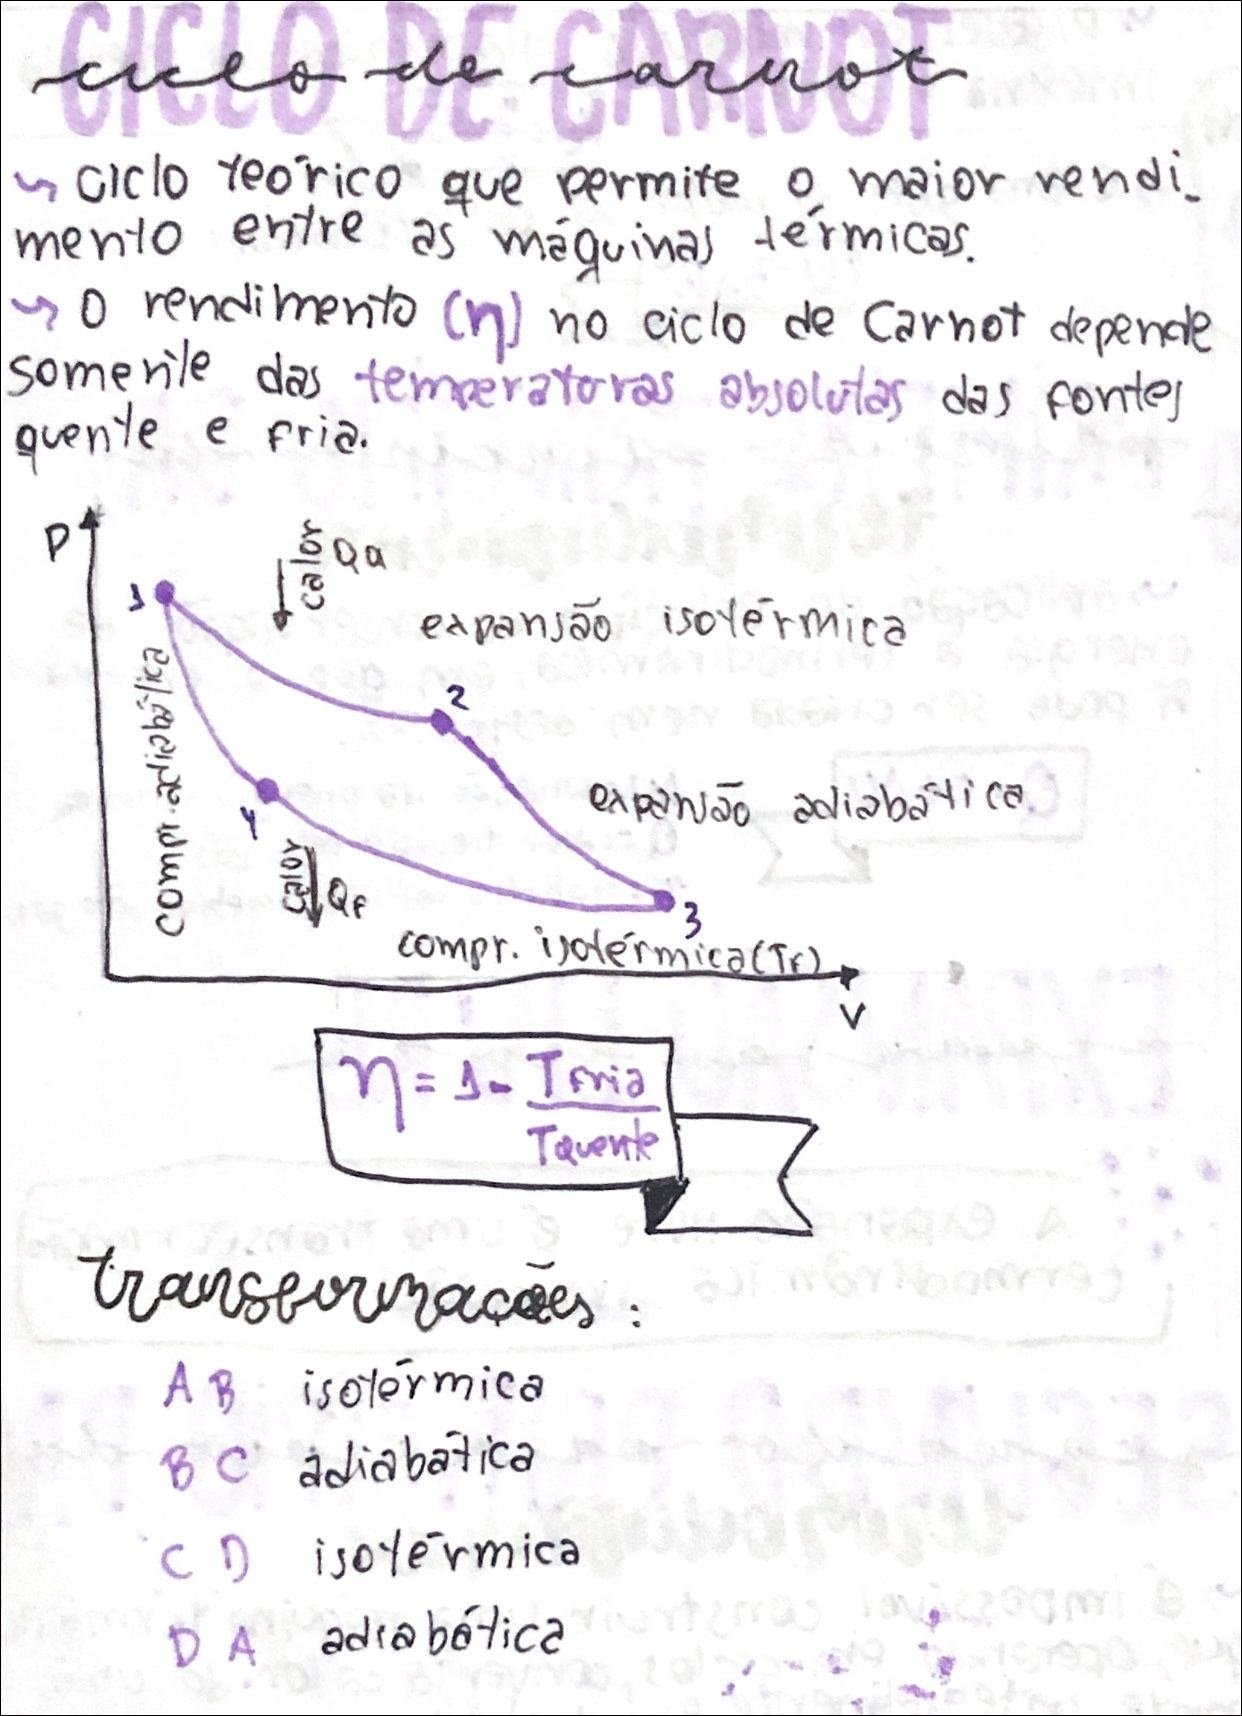 CICLO DE CARNOT
ciclo de carnot
↝ ciclo teórico que permite o maior rendi-
mento entre as máquinas térmicas.
↝ O rendimento (η) no ciclo de Carnot depende
somente das temperaturas absolutas das fontes
quente e fria.
P
calor Qa
1
expansão isotérmica
compr. adiabática
2
expansão adiabática
4
calor Qf
3
compr. isotérmica (Tf)
V
η = 1 - Tfria / Tquente
transformações:
A B isotérmica
B C adiabática
C D isotérmica
D A adiabática